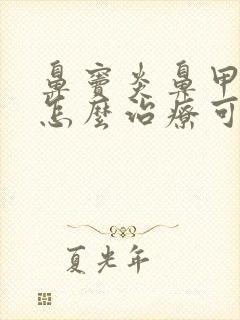 鼻窦炎鼻甲
怎麼治療可
夏光年